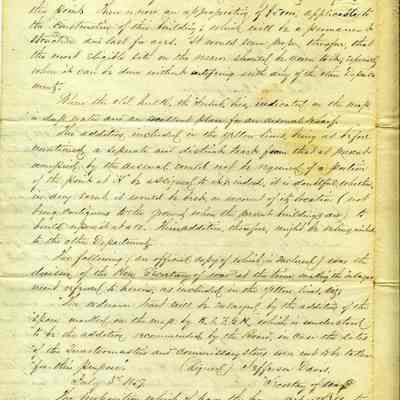 the Point. There is now an appropriation of $ applicable to
the construction of this building, which will be a permanent
structure and last for ages. It would seem proper, therefore, that
the most eligible site on the reserve should be given to it, especially
when it can be done without interfering with any of the other Depart-
ments.
Where the old hulk, the is indicated on the map
is deep water and an excellent place for an arsenal wharf.
The addition, included in the Yellow lines, being as before
mentioned, a separate and distinct tract from that at present
occupied by the arsenal could not be required, if a portion
of the point at X be assigned to it; indeed, it is doubtful whether
in any event it would be used, on account of its location (not
being contiguous to the ground where the present buildings are) to
build upon at all. This addition, therefore, might be relinquished
to the other Departments.
The following (an official copy of which is enclosed) was the
decision of the Hon. Secretary of War at the time, making the enlarge-
ment referred to herein, as included in the Yellow lines, viz:
"The ordnance tract will be enlarged by the addition of the
space marked on the map by H. I. G. K, which is understood
to be the addition recommended by the Board, in case the sites
of the Quartermasters and Commissary stores were not to be taken
for other purposes. (Signed) Jefferson Davis,
July 3d 1857. Secretary of War"
The proposition which I have the